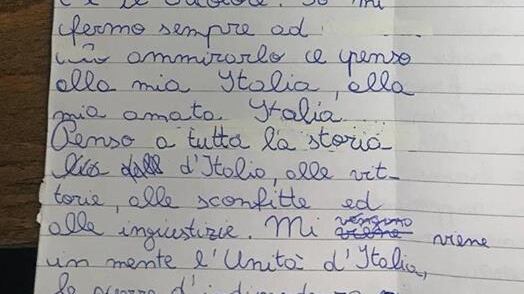 fermo sempre ad
ammirarlo e penso
alla mia Italia, alla
mia amata Italia
Penso a tutta la storia
d'Italia, alle vit-
torie, alle sconfitte ed
alle ingiustizie. Mi vengono viene
in mente l'Unità d'Italia,